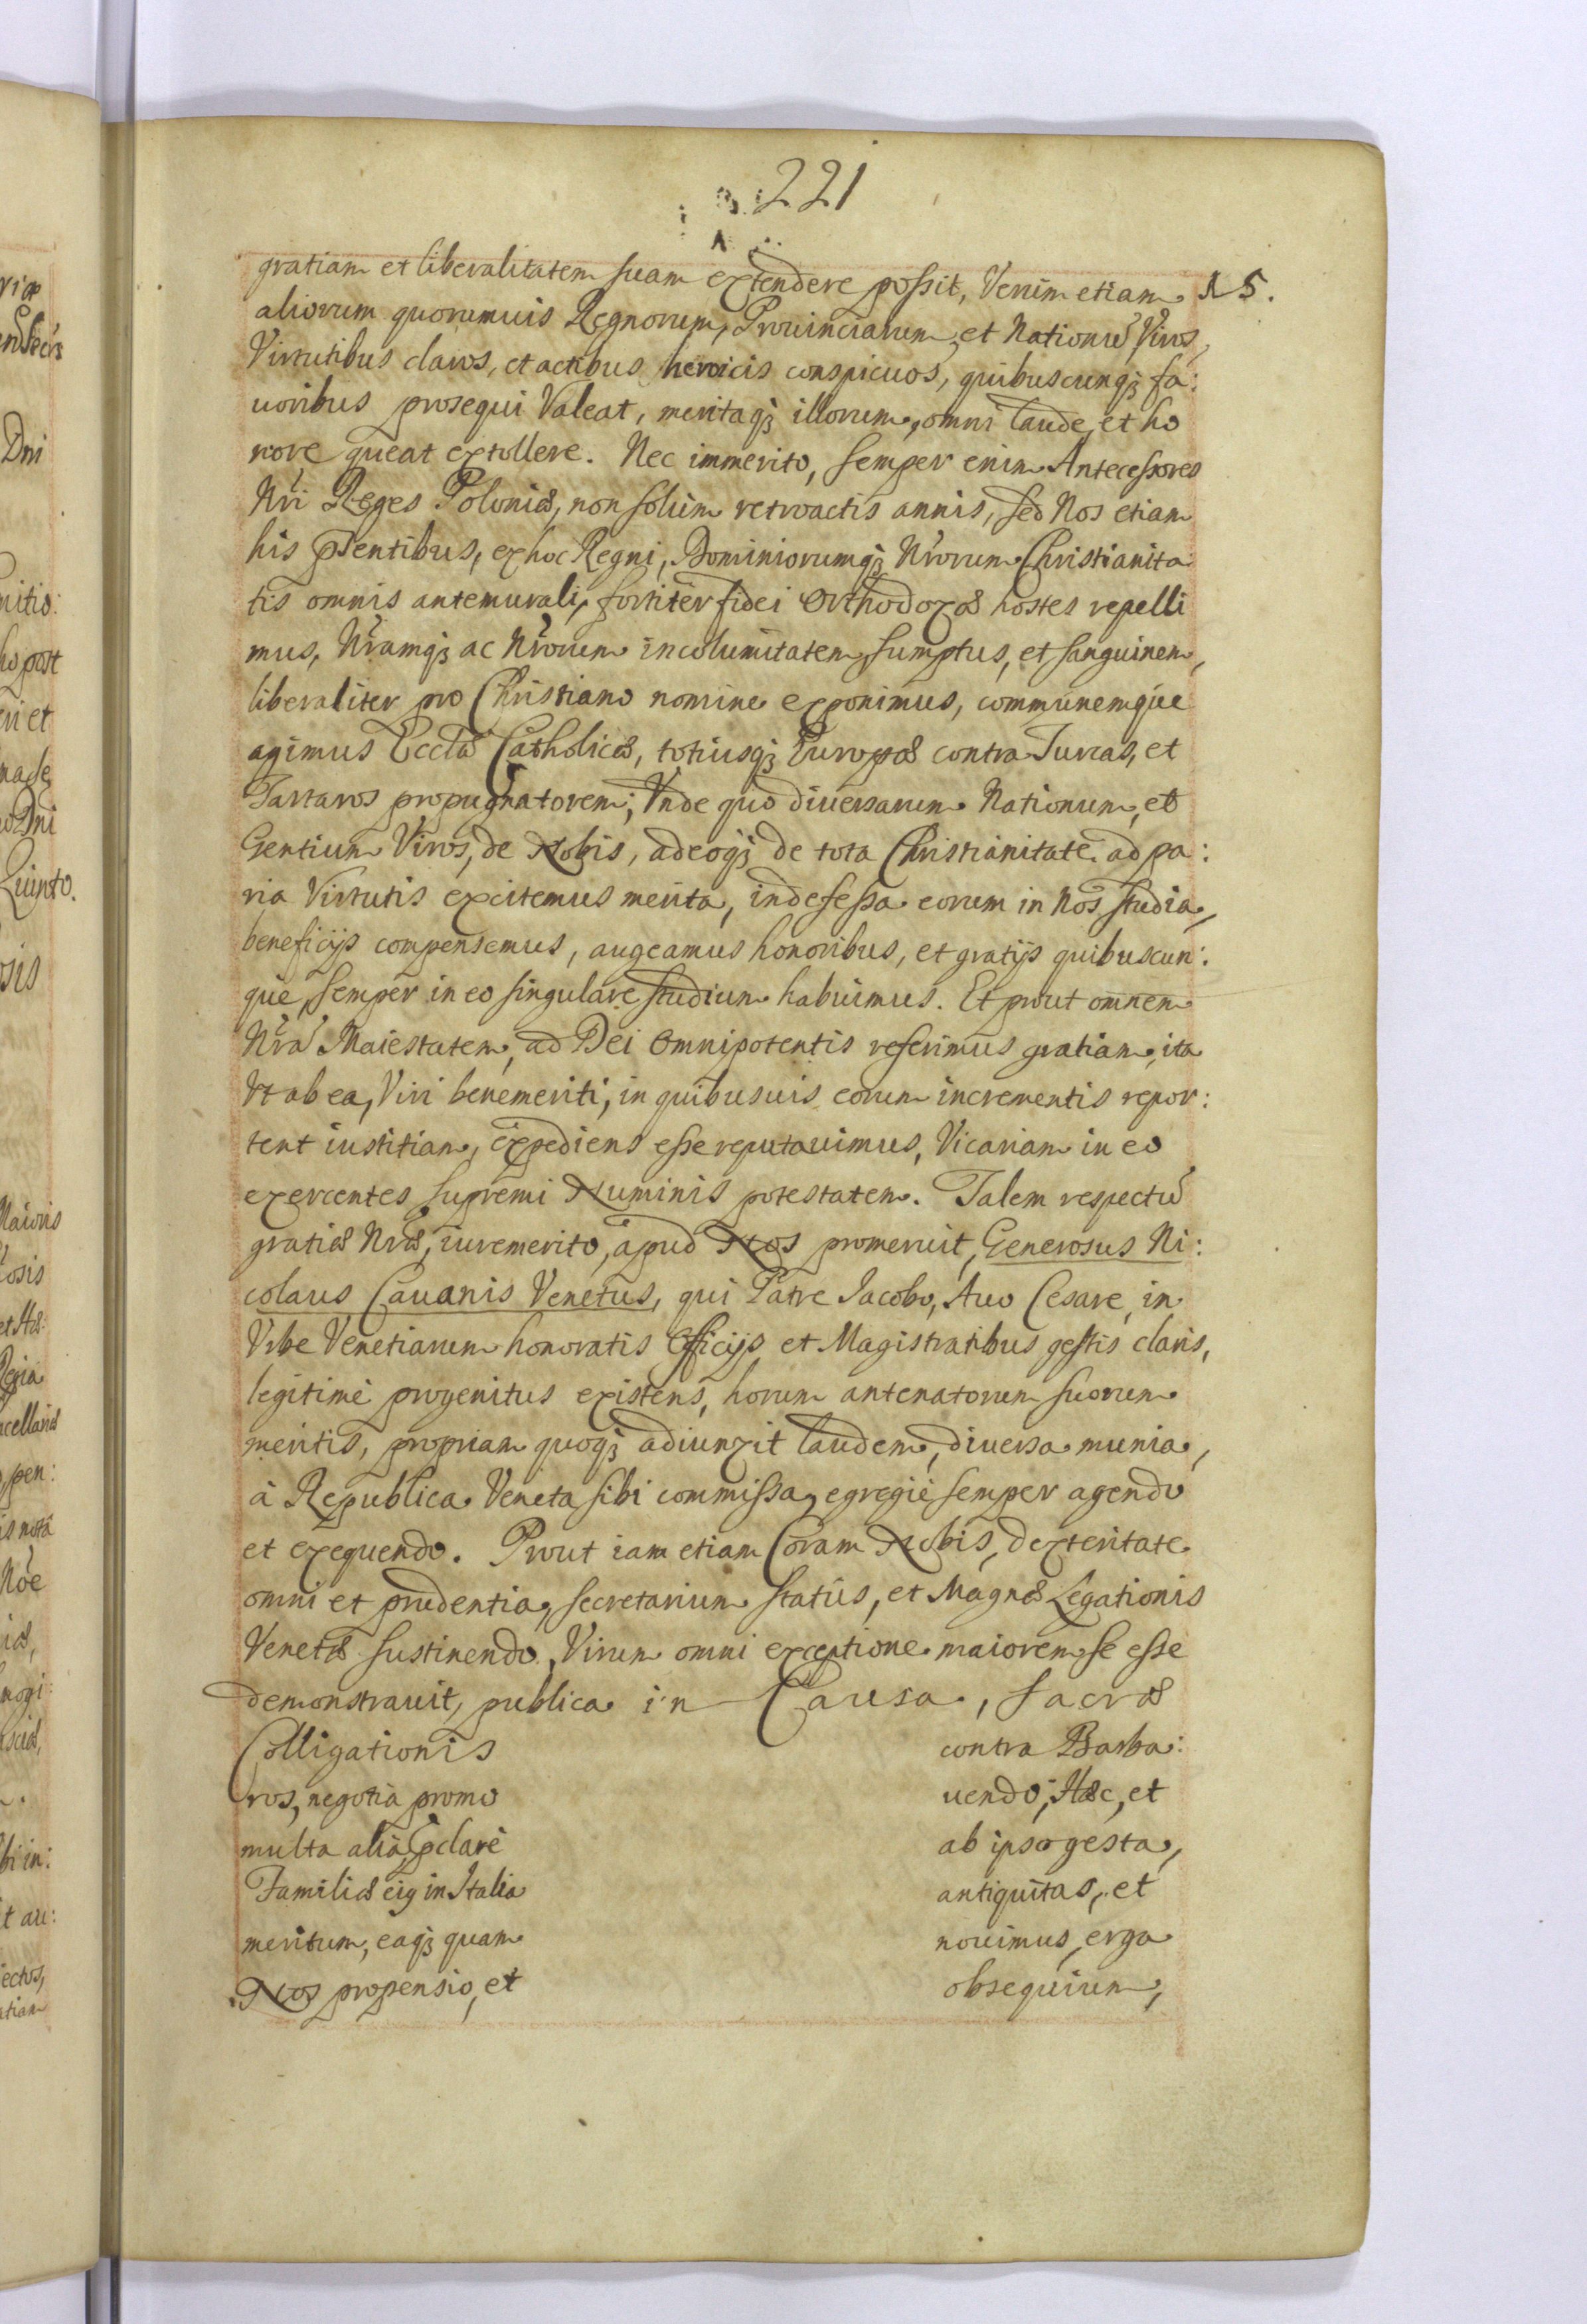 221
gratiam et liberalitatem suam extendere possit, Verum etiam 15.
aliorum quorumuis Regnorum, Prouinciarum, et Nationũ Viros,
Virtutibus claros, et actibus heroicis conspicuos, quibuscunqȝ fa:
uoribus prosequi Valeat, meritaqȝ illorum, omni laude, et ho
nore queat extollere. Nec immerito, semper enim Antecessores
Nr̃i Reges Poloniæ, non solùm retroactis annis, sed Nos etiam
his p̃sentibus, ex hoc Regni, Dominiorumqȝ Nr̃orum Christianita
tis omnis antemurali, fortiter fidei Orthodoxæ hostes repelli
mus, Nr̃amqȝ ac Nr̃orum incolumitatem, sumptus, et sanguinem,
liberaliter pro Christiano nomine exponimus, communemque
agimus Eccl̃æ Catholicæ, totiusqȝ Europæ contra Turcas, et
Tartaros propugnatorem; Vnde quo diuersarum Nationum, et
Gentium Viros, de Nobis, adeoqȝ de tota Christianitate ad pa:
ria Virtutis excitemus merita, indefessa eorum in Nos studia,
beneficijs compensemus, augeamus honoribus, et gratijs quibuscun:
que, semper in eo singulare studium habuimus. Et prout omnem
Nr̃ã Maiestatem, ad Dei Omnipotentis referimus gratiam, ita
Vt ab ea, Viri benemeriti, in quibusuis eorum incrementis repor:
tent iustitiam, expediens esse reputauimus, Vicariam in eo
exercentes supremi Numinis potestatem. Talem respectũ
gratiæ Nr̃æ, iuremerito, apud Nos promeruit, Generosus Ni:
colaus Cauanis Venetus, qui Patre Iacobo, Auo Cesare, in
Vrbe Venetiarum honoratis Officijs et Magistratibus gestis claris,
legitimè progenitus existens, horum antenatorum suorum
meritis, propriam quoqȝ adiunxit laudem, diuersa munia,
à Republica Veneta sibi commissa, egregiè semper agendo
et exequendo. Prout iam etiam Coram Nobis, dexteritate
omni et prudentia, secretarium statûs, et Magnæ Legationis
Venetæ sustinendo, Virum omni exceptione maiorem se esse
demonstrauit, publica in Causa, sacræ
Colligationis contra Barba:
ros, negotia promo uendo; Hæc, et
multa alia, p̃clarè ab ipso gesta,
Familiæ eiꝰ in Italia antiquitas, et
meritum, eaqȝ quam nouimus, erga
Nos propensio, et obsequium,